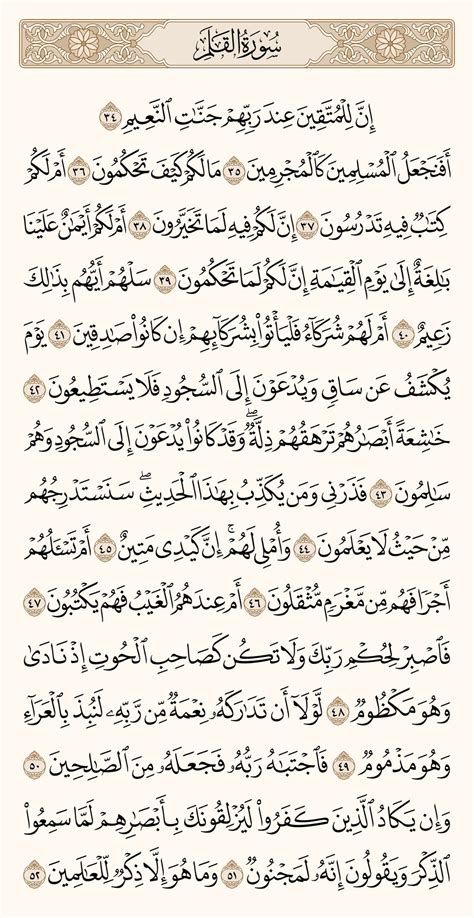 سُورَةُ القَلَمِ
إِنَّ لِلْمُتَّقِينَ عِندَ رَبِّهِمْ جَنَّاتِ ٱلنَّعِيمِ ٣٤
أَفَنَجْعَلُ ٱلْمُسْلِمِينَ كَٱلْمُجْرِمِينَ ٣٥ مَا لَكُمْ كَيْفَ تَحْكُمُونَ ٣٦ أَمْ لَكُمْ
كِتَٰبٌ فِيهِ تَدْرُسُونَ ٣٧ إِنَّ لَكُمْ فِيهِ لَمَا تَخَيَّرُونَ ٣٨ أَمْ لَكُمْ أَيْمَٰنٌ عَلَيْنَا
بَٰلِغَةٌ إِلَىٰ يَوْمِ ٱلْقِيَٰمَةِ إِنَّ لَكُمْ لَمَا تَحْكُمُونَ ٣٩ سَلْهُمْ أَيُّهُم بِذَٰلِكَ
زَعِيمٌ ٤٠ أَمْ لَهُمْ شُرَكَآءُ فَلْيَأْتُوا۟ بِشُرَكَآئِهِمْ إِن كَانُوا۟ صَٰدِقِينَ ٤١ يَوْمَ
يُكْشَفُ عَن سَاقٍ وَيُدْعَوْنَ إِلَى ٱلسُّجُودِ فَلَا يَسْتَطِيعُونَ ٤٢
خَٰشِعَةً أَبْصَٰرُهُمْ تَرْهَقُهُمْ ذِلَّةٌ ۖ وَقَدْ كَانُوا۟ يُدْعَوْنَ إِلَى ٱلسُّجُودِ وَهُمْ
سَٰلِمُونَ ٤٣ فَذَرْنِى وَمَن يُكَذِّبُ بِهَٰذَا ٱلْحَدِيثِ ۖ سَنَسْتَدْرِجُهُم
مِّنْ حَيْثُ لَا يَعْلَمُونَ ٤٤ وَأُمْلِى لَهُمْ ۚ إِنَّ كَيْدِى مَتِينٌ ٤٥ أَمْ تَسْـَٔلُهُمْ
أَجْرًا فَهُم مِّن مَّغْرَمٍ مُّثْقَلُونَ ٤٦ أَمْ عِندَهُمُ ٱلْغَيْبُ فَهُمْ يَكْتُبُونَ ٤٧
فَٱصْبِرْ لِحُكْمِ رَبِّكَ وَلَا تَكُن كَصَاحِبِ ٱلْحُوتِ إِذْ نَادَىٰ
وَهُوَ مَكْظُومٌ ٤٨ لَّوْلَآ أَن تَدَٰرَكَهُۥ نِعْمَةٌ مِّن رَّبِّهِۦ لَنُبِذَ بِٱلْعَرَآءِ
وَهُوَ مَذْمُومٌ ٤٩ فَٱجْتَبَٰهُ رَبُّهُۥ فَجَعَلَهُۥ مِنَ ٱلصَّٰلِحِينَ ٥٠
وَإِن يَكَادُ ٱلَّذِينَ كَفَرُوا۟ لَيُزْلِقُونَكَ بِأَبْصَٰرِهِمْ لَمَّا سَمِعُوا۟
ٱلذِّكْرَ وَيَقُولُونَ إِنَّهُۥ لَمَجْنُونٌ ٥١ وَمَا هُوَ إِلَّا ذِكْرٌ لِّلْعَٰلَمِينَ ٥٢